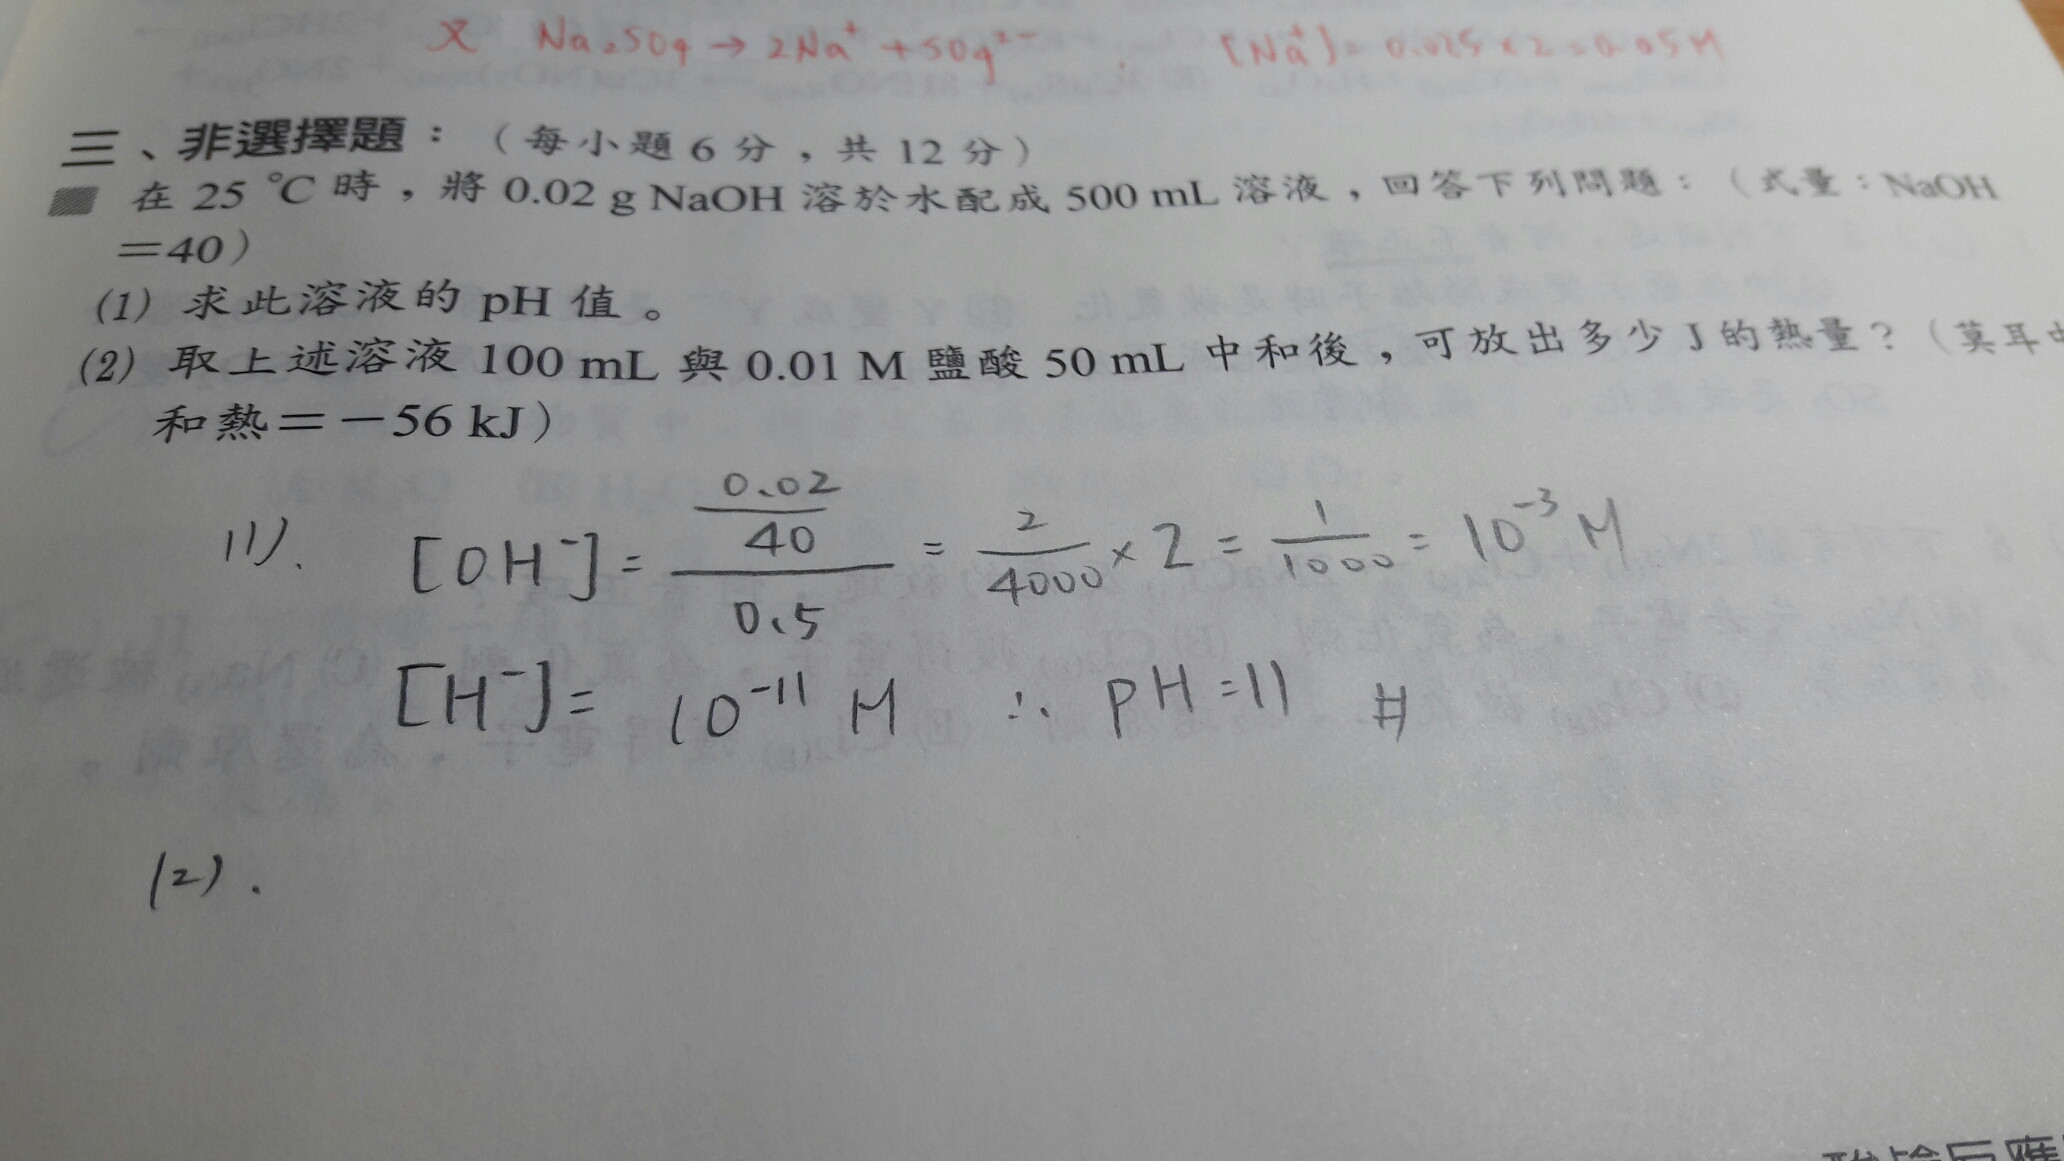 又 Na₂SO₄ → 2Na⁺ + SO₄²⁻ . [Na⁺] = 0.025 × 2 = 0.05 M
三、非選擇題：（每小題 6 分，共 12 分）
在 25 ℃ 時，將 0.02 g NaOH 溶於水配成 500 mL 溶液，回答下列問題：（式量：NaOH
＝40）
(1) 求此溶液的 pH 值。
(2) 取上述溶液 100 mL 與 0.01 M 鹽酸 50 mL 中和後，可放出多少 J 的熱量？（莫耳
和熱＝－56 kJ）
(1). [OH⁻] = (0.02/40)/0.5 = 2/4000 × 2 = 1/1000 = 10⁻³ M
[H⁻] = 10⁻¹¹ M ∴ pH = 11 #
(2).